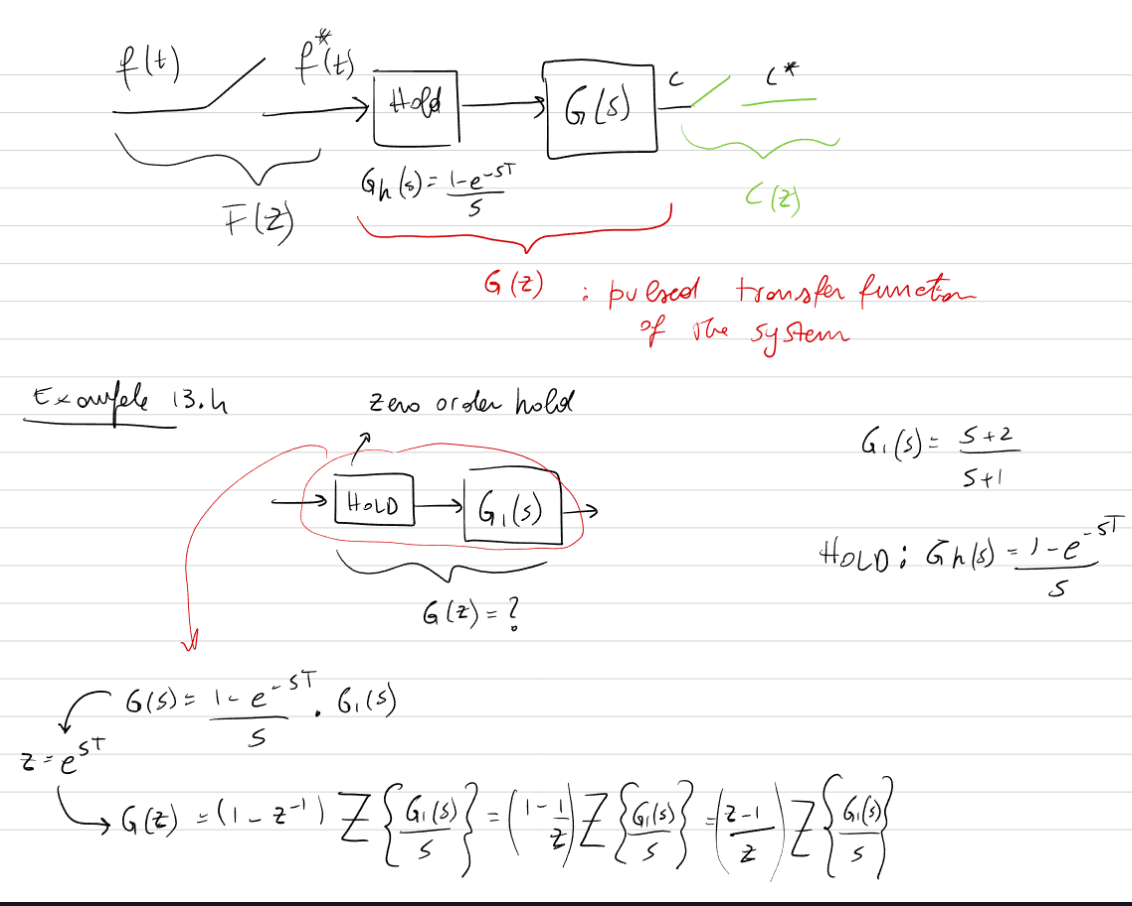 f(t) f*(t) Hold G(s) c c*
Gh(s) = (1-e^-sT)/s
F(z) C(z)
G(z) : pulsed transfer function
of the system
Example 13.4
zero order hold
G₁(s) = (s+2)/(s+1)
HOLD G₁(s)
HOLD : Gh(s) = (1-e^-sT)/s
G(z) = ?
G(s) = (1-e^-sT)/s . G₁(s)
z = e^sT
G(z) = (1-z^-1) Z{G₁(s)/s} = (1-1/z) Z{G₁(s)/s} = (z-1/z) Z{G₁(s)/s}